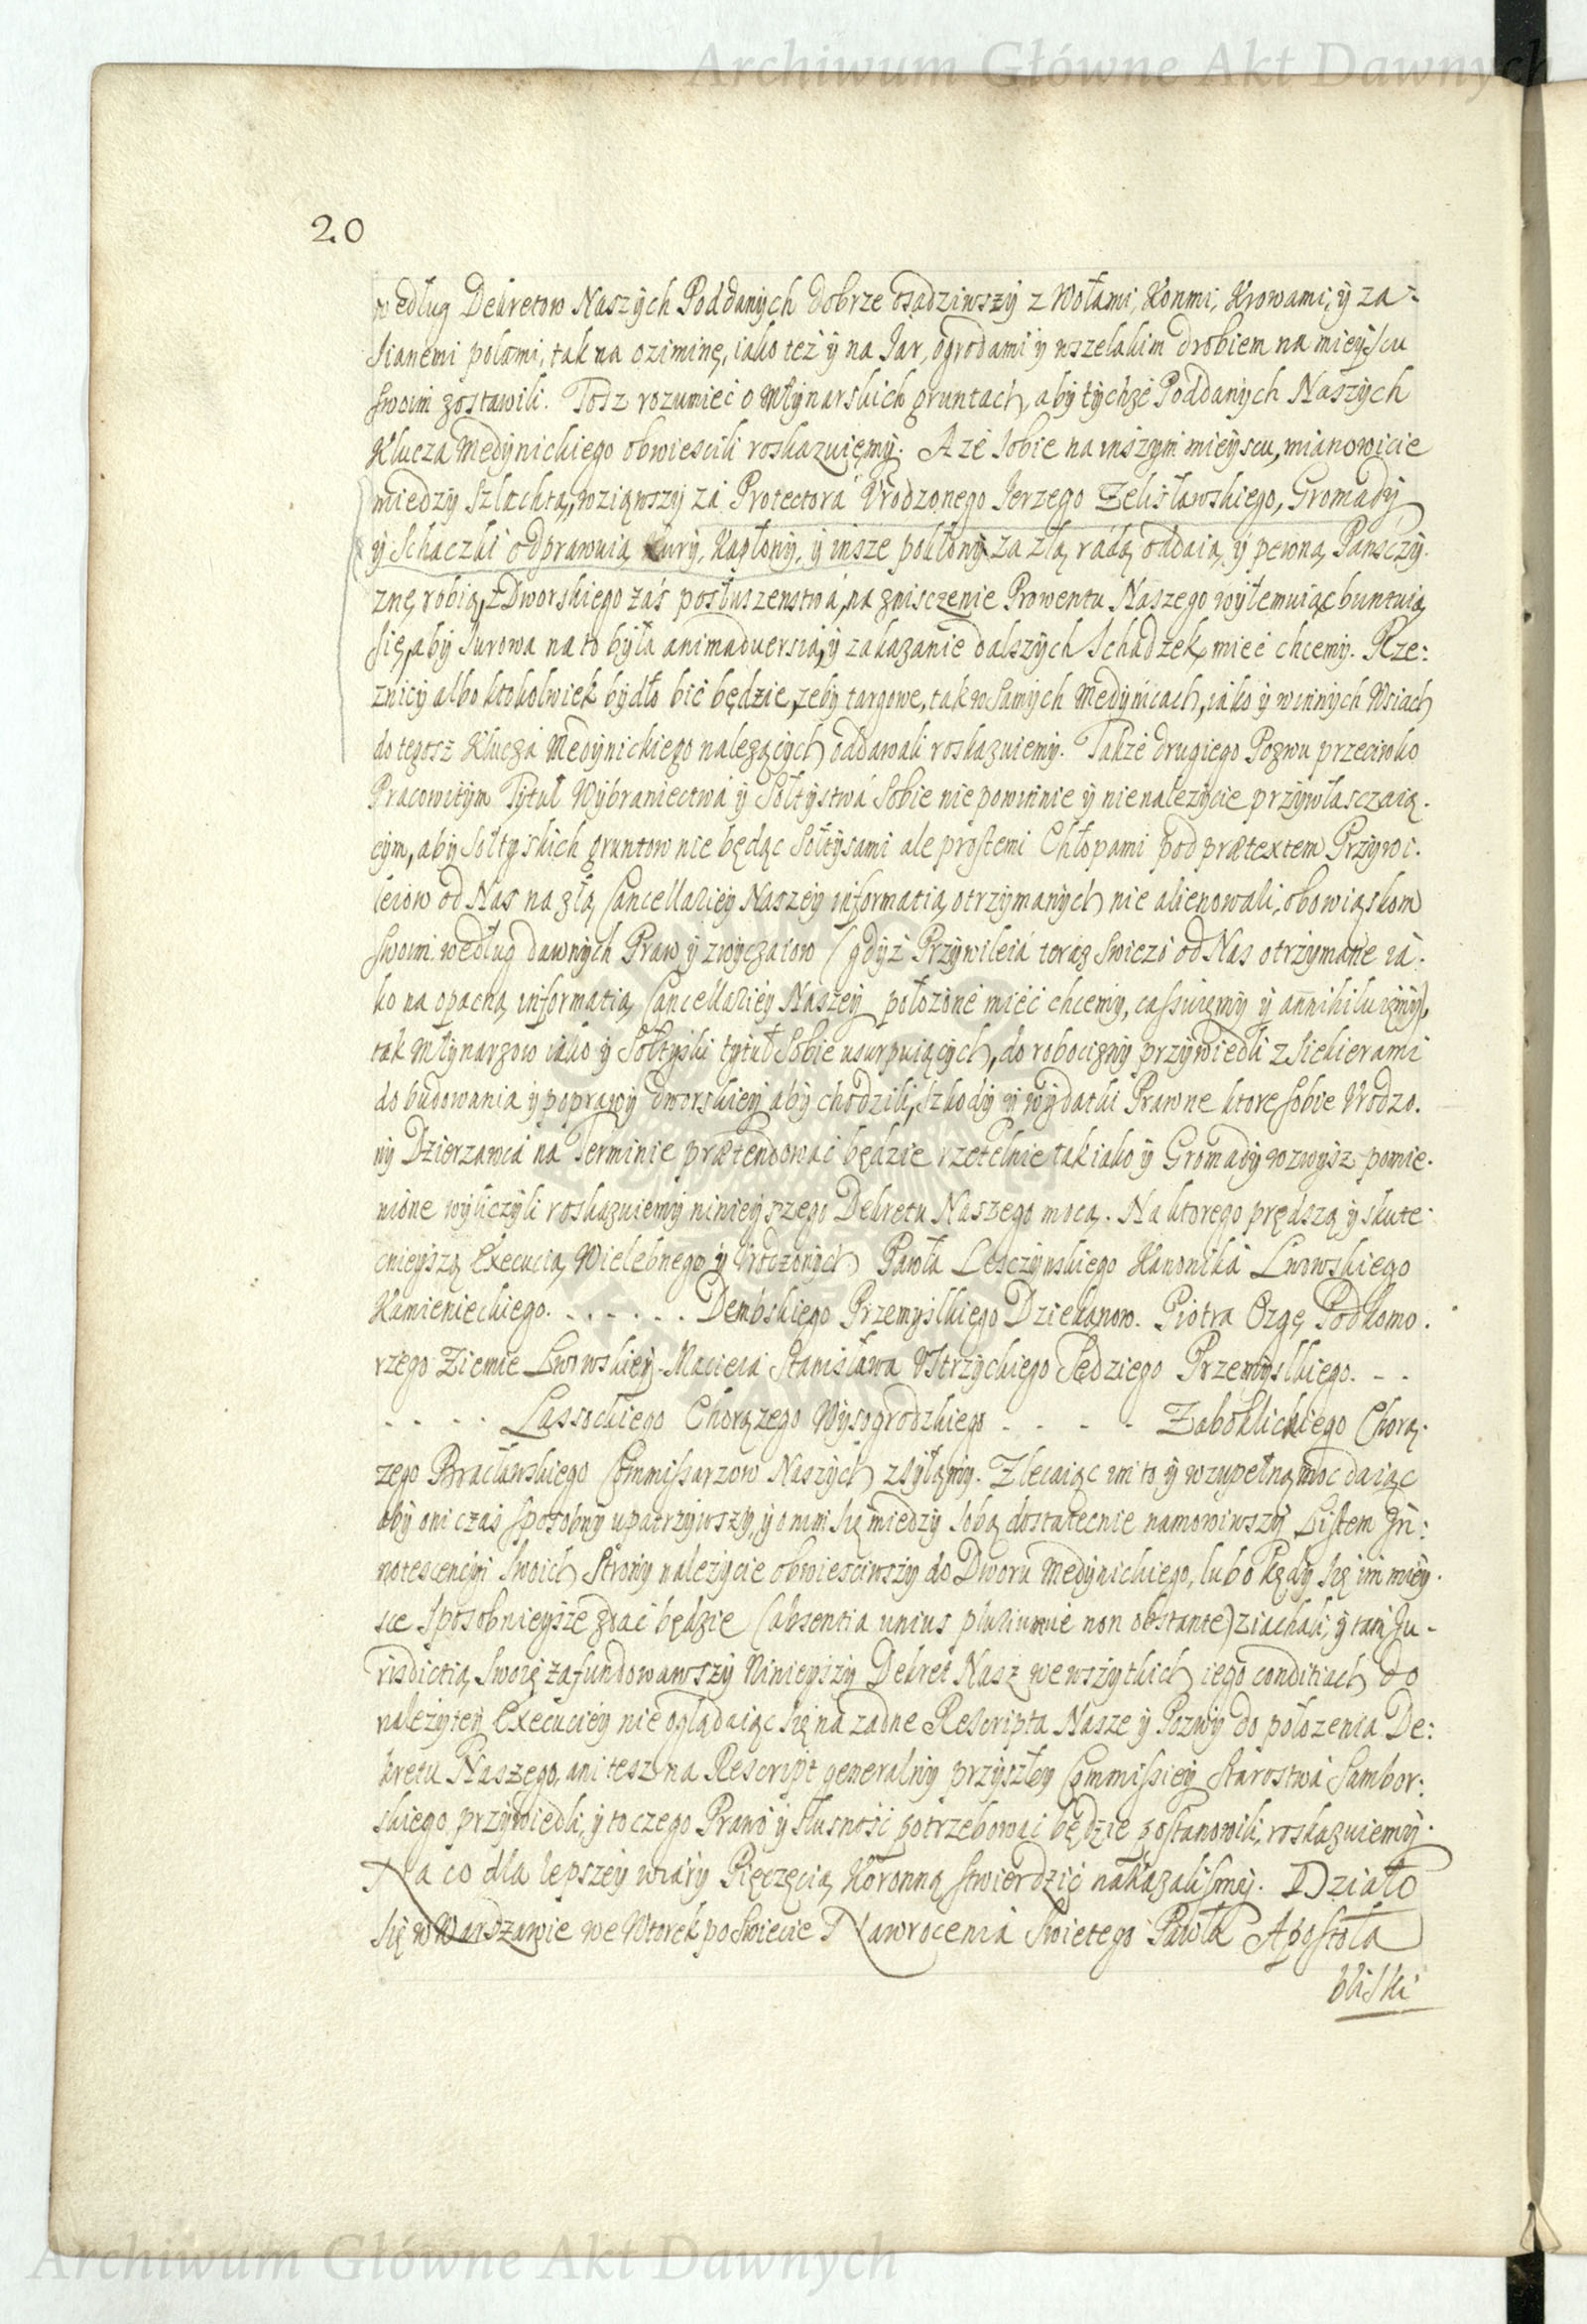 Archiwum Główne Akt Dawnych
20
według Dekretow Naszych Poddanych dobrze osadziwszy z Wołami, Konmi, Krowami, y za=
sianemi polami, tak na oziminę, iako też y na Jar, ogrodami y wszelakim drobiem na mieyscu
swoim zostawili. Todz rozumiec o Młynarskich gruntach, aby tychze Poddanych Naszych
Klucza Medynickiego obwiescili roskazuięmy. A ze sobie na inszym mieyscu, mianowicie
miedzy Szlachtą, wziąwszy za Protectora Urodzonego Jerzego Zelisławskiego, Gromady
y Schaczki odprawuią, kury, Kapłony, y insze pokłony za złą radą oddaią, y pewną Pansczy.
znę robią, z Dworskiego zaś posłuszenstwa, na znisczenie Prowentu Naszego wyłemuiąc buntuią
się, aby surowa na to była animaduersia, y zakazanie dalszych Schadzek, mieć chcemy. Rze:
znicy albo ktokolwiek bydło bić będzie, zeby targowe, tak w samych Medynicach, iako y w innych Wsiach
do tegosz Klucza Medynickiego nalezących oddawali roskazuiemy. Także drugiego Pozwu przeciwko
Pracowitym Tytuł Wybraniectwa y Sołtystwa sobie nie powinnie y nienalezycie przywłasczaią.
cym, aby Sołtyskich gruntow nie będąc Sołtysami ale prostemi Chłopami pod prætextem Przywi.
leiow od Nas na złą Cancellariey Naszey informatią otrzymanych nie alienowali, obowiąskom
swoim według dawnych Praw y zwyczaiow (gdyż Przywileia teraz swiezo od Nas otrzymane ia.
ko na opaczną informatią Cancellariey Naszey położone mieć chcemy, cassuięmy y annihiluięmy),
tak Młynarzow iako y Sołtyski tytuł sobie usurpuiących, do robocizny przywiedli z siekierami
do budowania y poprawy dworskiey aby chodzili, szkody y wydatki Prawne ktore sobie Urodzo.
ny Dzierzawca na Terminie prætendowac będzie rzetelnie tak iako y Gromady wzwysz pomie.
nione wyliczyli roskazuiemy ninieyszego Dekretu Naszego mocą. Na ktorego prędszą y skute.
cznieyszą Execucią, Wielebnego y Urodzonych Pawła Lesczynskiego Kanonika Lwowskiego
Kamienieckiego. . . . . . . Dembskiego Przemyslkiego Dziekanow. Piotra Ozgę Podkomo.
rzego Ziemie Lwowskiey. Macieia Stanisława Ustrzyckiego Sędziego Przemyslkiego. - -
- - - - Lassockiego Chorązego Wysogrodzkiego - - - - Zaboklickiego Chorą.
zego Bracławskiego Commissarzow Naszych zsyłamy. Zlecaiąc im to y wzupełną moc daiąc
aby oni czas sposobny upatrzywszy, y o nim się miedzy sobą dostatecnie namowiwszy Listem In:
notescencyi swoich Strony nalezycie obwiesciwszy do Dworu Medynickiego, lubo kędy się im miey.
sce sposobnieysze zdać będzie (absentia unius pluriumue non obstante) ziachali, y tam Ju-
risdictią swoię zafundowawszy Ninieyszy Dekret Nasz we wszytkich iego conditiach do
należytey Execuciey nie oglądaiąc się na zadne Rescripta Nasze y Pozwy do połozenia De:
kretu Naszego, ani tesz na Rescript generalny przyszłey Commissiey Starostwa Sambor:
skiego przywiedli, y to czego Prawo y słusnośc potrzebowac będzie postanowili, roskazuiemy.
Na co dla lepszey wiary Pięczęcią Koronną stwierdzić nakazalismy. Działo
się w Wardzawie we Wtorek po Swiecie Nawrocenia Swietego Pawła Apostoła
bliski
Archiwum Główne Akt Dawnych